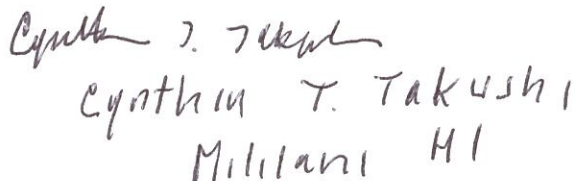 Cynthia T. Takushi
Cynthia T. Takushi
Mililani HI